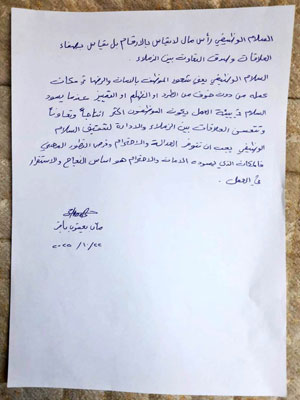 السلام الوظيفي رأس مال لا يقاس بالارقام بل يقاس بصفاء
العلاقات وصدق التعاون بين الزملاء
السلام الوظيفي يعني شعور الموظف بالامان والرضا في مكان
عمله من دون خوف من الطرد او الظلم او التمييز عندما يسود
السلام في بيئة العمل يكون الموظفون اكثر انتاجاً وتعاوناً
وتتحسن العلاقات بين الزملاء والادارة لتحقيق السلام
الوظيفي يجب ان تتوفر العدالة والاحترام وفرص التطور المهني
فالمكان الذي يسوده الامان والاحترام هو اساس النجاح والاستقرار
في العمل .
٢٠٢٥/١٠/٢٢